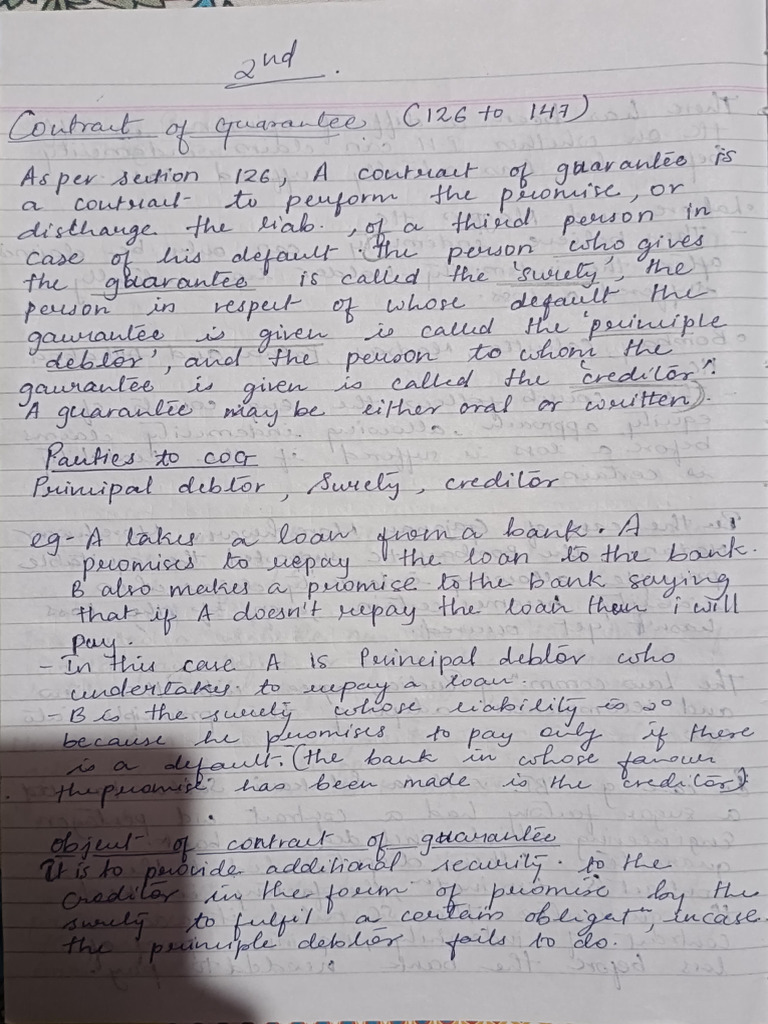 2nd.
Contract of guarantee (126 to 147)
As per section 126, A contract of guarantee is
a contract to perform the promise, or
discharge the liab., of a third person in
case of his default. The person who gives
the guarantee is called the 'surety', the
person in respect of whose default the
gaurantee is given is called the 'principle
debtor', and the person to whom the
gaurantee is given is called the 'creditor'.
A guarantee may be either oral or written).
Parties to COG
Principal debtor, Surety, creditor
eg- A takes a loan from a bank. A
promises to repay the loan to the bank.
B also makes a promise to the bank saying
that if A doesn't repay the loan then i will
pay.
- In this case A is Principal debtor who
undertakes to repay a loan.
- B is the surety whose liability is 2°
because he promises to pay only if there
is a default. (the bank in whose favour
the promise has been made is the creditor)
Object of contract of guarantee
It is to provide additional security to the
creditor in the form of promise by the
surety to fulfil a certain obligatn, incase
the principle debtor fails to do.